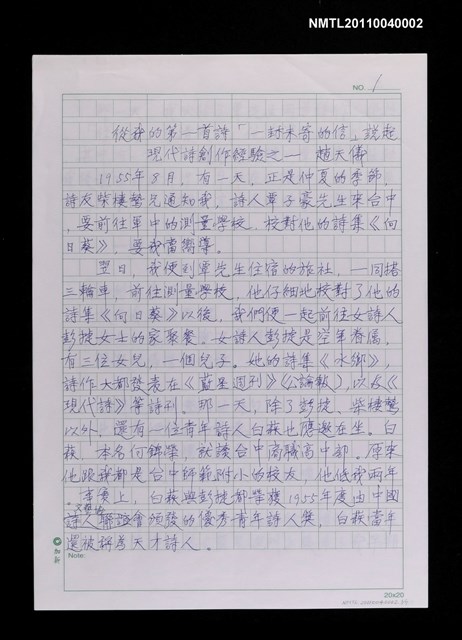 NMTL20110040002
NO. 1
從我的第一首詩「一封未寄的信」說起
現代詩創作經驗之一 趙天儀
1955年8月,有一天,正是仲夏的季節,
詩友柴棲鷙兄通知我,詩人覃子豪先生來台中
,要前往軍中的測量學校,校對他的詩集《向
日葵》,要我當嚮導。
翌日,我便到覃先生住宿的旅社,一同搭
三輪車,前往測量學校,他仔細地校對了他的
詩集《向日葵》以後,我們便一起前往女詩人
彭捷女士的家聚餐。女詩人彭捷是空軍眷屬,
有三位女兒,一個兒子。她的詩集《水鄉》,
詩作大都發表在《藍星週刊》(公論報),以及《
現代詩》等詩刊。那一天,除了彭捷、柴棲鷙
以外,還有一位青年詩人白萩也應邀在坐。白
萩,本名何錦榮,就讀台中商職高中部。原來
他跟我都是台中師範附小的校友,他低我兩年
。事實上,白萩與彭捷都榮獲1955年度由中國
文藝協會頒發的優秀青年詩人獎,白萩當年
還被稱為天才詩人。
Note:
20x20